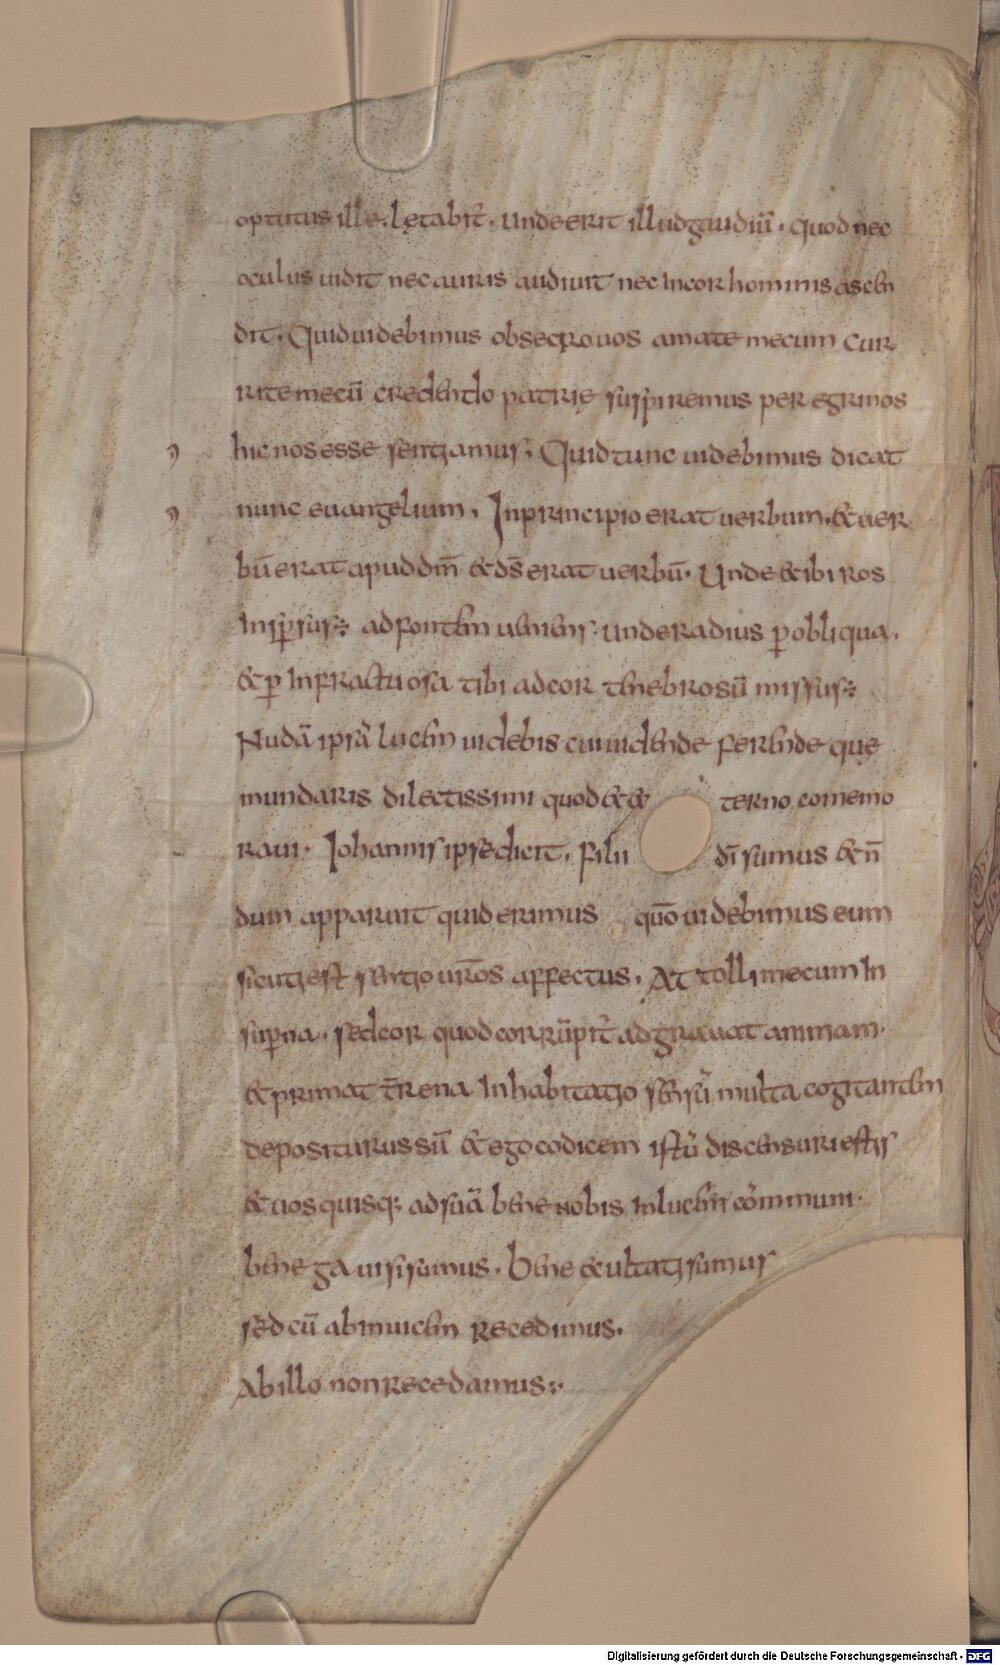 optutus ille. lętabit᷑. unde erit illud gaudiū. quod nec
oculus uidit nec auris audiuit nec incor hominis ascen
dit. Quid uidebimus obsecro uos amate mecum cur
rite mecū credendo patrię suspiremus peregrinos
hic nos esse sentiamus. Quid tunc uidebimus dicat
nunc euangelium. Inprincipio erat uerbum. & uer
bū erat apud dm̄ & ds̄ erat uerbū. Unde & ibi ros
insp̱sus; ad fontem ueniens. unde radius p̱ obliqua.
& p̱ infractuosa tibi ad cor tenebrosū missus;
Nudā ipsā lucem uidebis cui uidende ferende quę
mundaris dilectissimi quod & terno comemo
raui. Johannis ipse dicit. filii dī sumus & n̄
dum apparuit quid erimus quō uidebimus eum
sicuti est sentio uros̄ affectus. Attolli mecum in
sup̱na. sed cor quod corrūpit᷑ adgrauat animam.
& primat t̄rena inhabitatio sensū multa cogitantem
depositurus sū & ego codicem istū discensuri estis
& uos quisq; ad suā bene nobis inlucem cōmmuni.
bene gauisi sumus. bene exultati sumus
sed cū abinuicem recedimus.
Ab illo non recedamus;
Digitalisierung gefördert durch die Deutsche Forschungsgemeinschaft - DFG